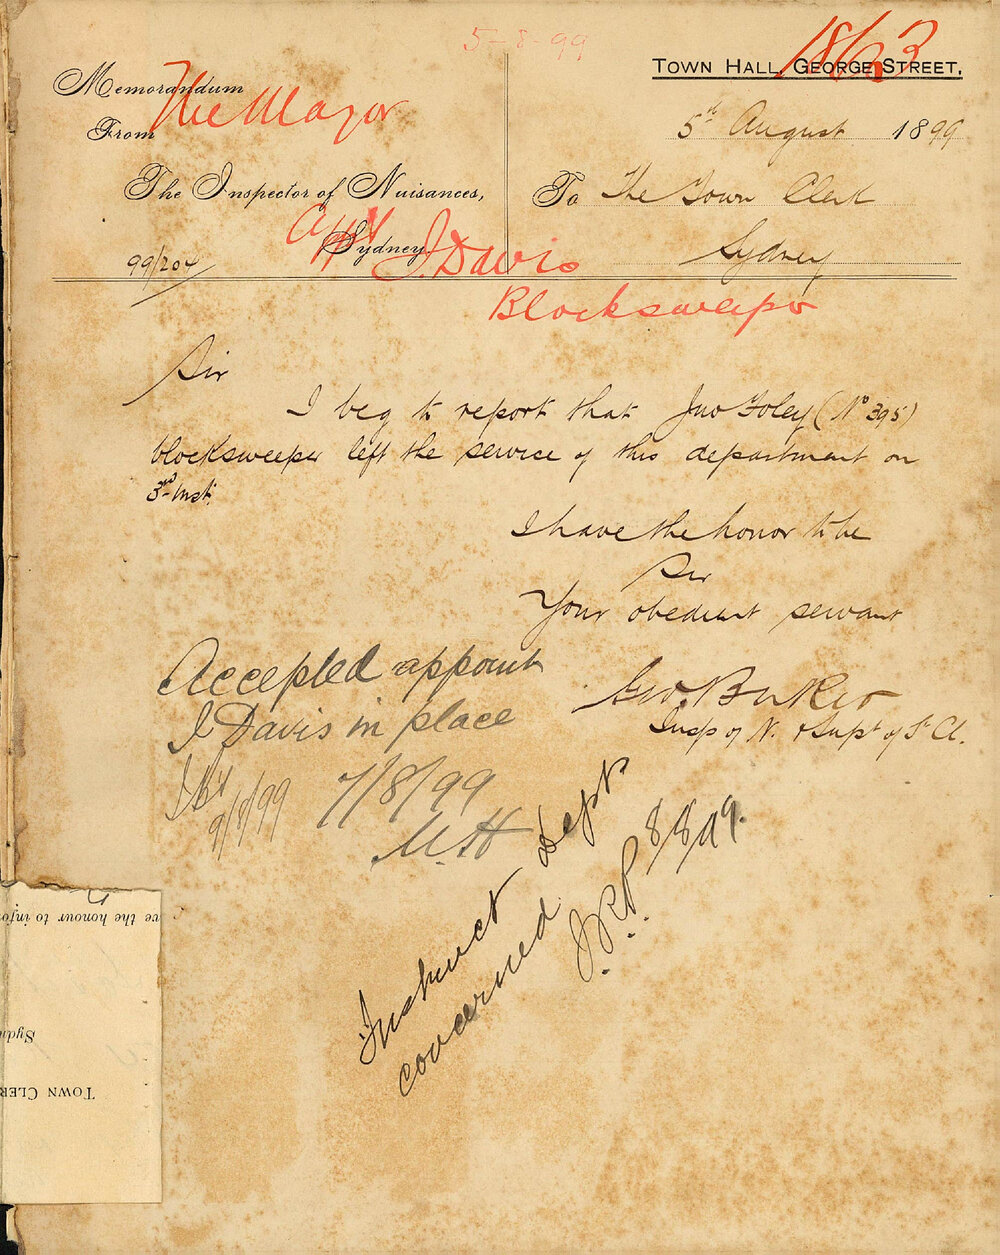 5-8-99
1863
Town Hall, George Street,
Memorandum
The Mayor
From
5th August 1899
The Inspector of Nuisances,
To The Town Clerk
Sydney
Sydney
99/204
Appt J Davis
Blocksweeper
Sir
I beg to report that Jno Foley (No 395)
blocksweeper left the service of this department on
3rd inst.
I have the honor to be
Sir
Your obedient servant
Insp of N. & Supt of St Cl.
Accepted appoint
J Davis in place
7/8/99
M.H
9/8/99
Instruct Dept
concerned
J.R.P. 8/8/99.
ve the honour to infor
Sydn
Town Cler